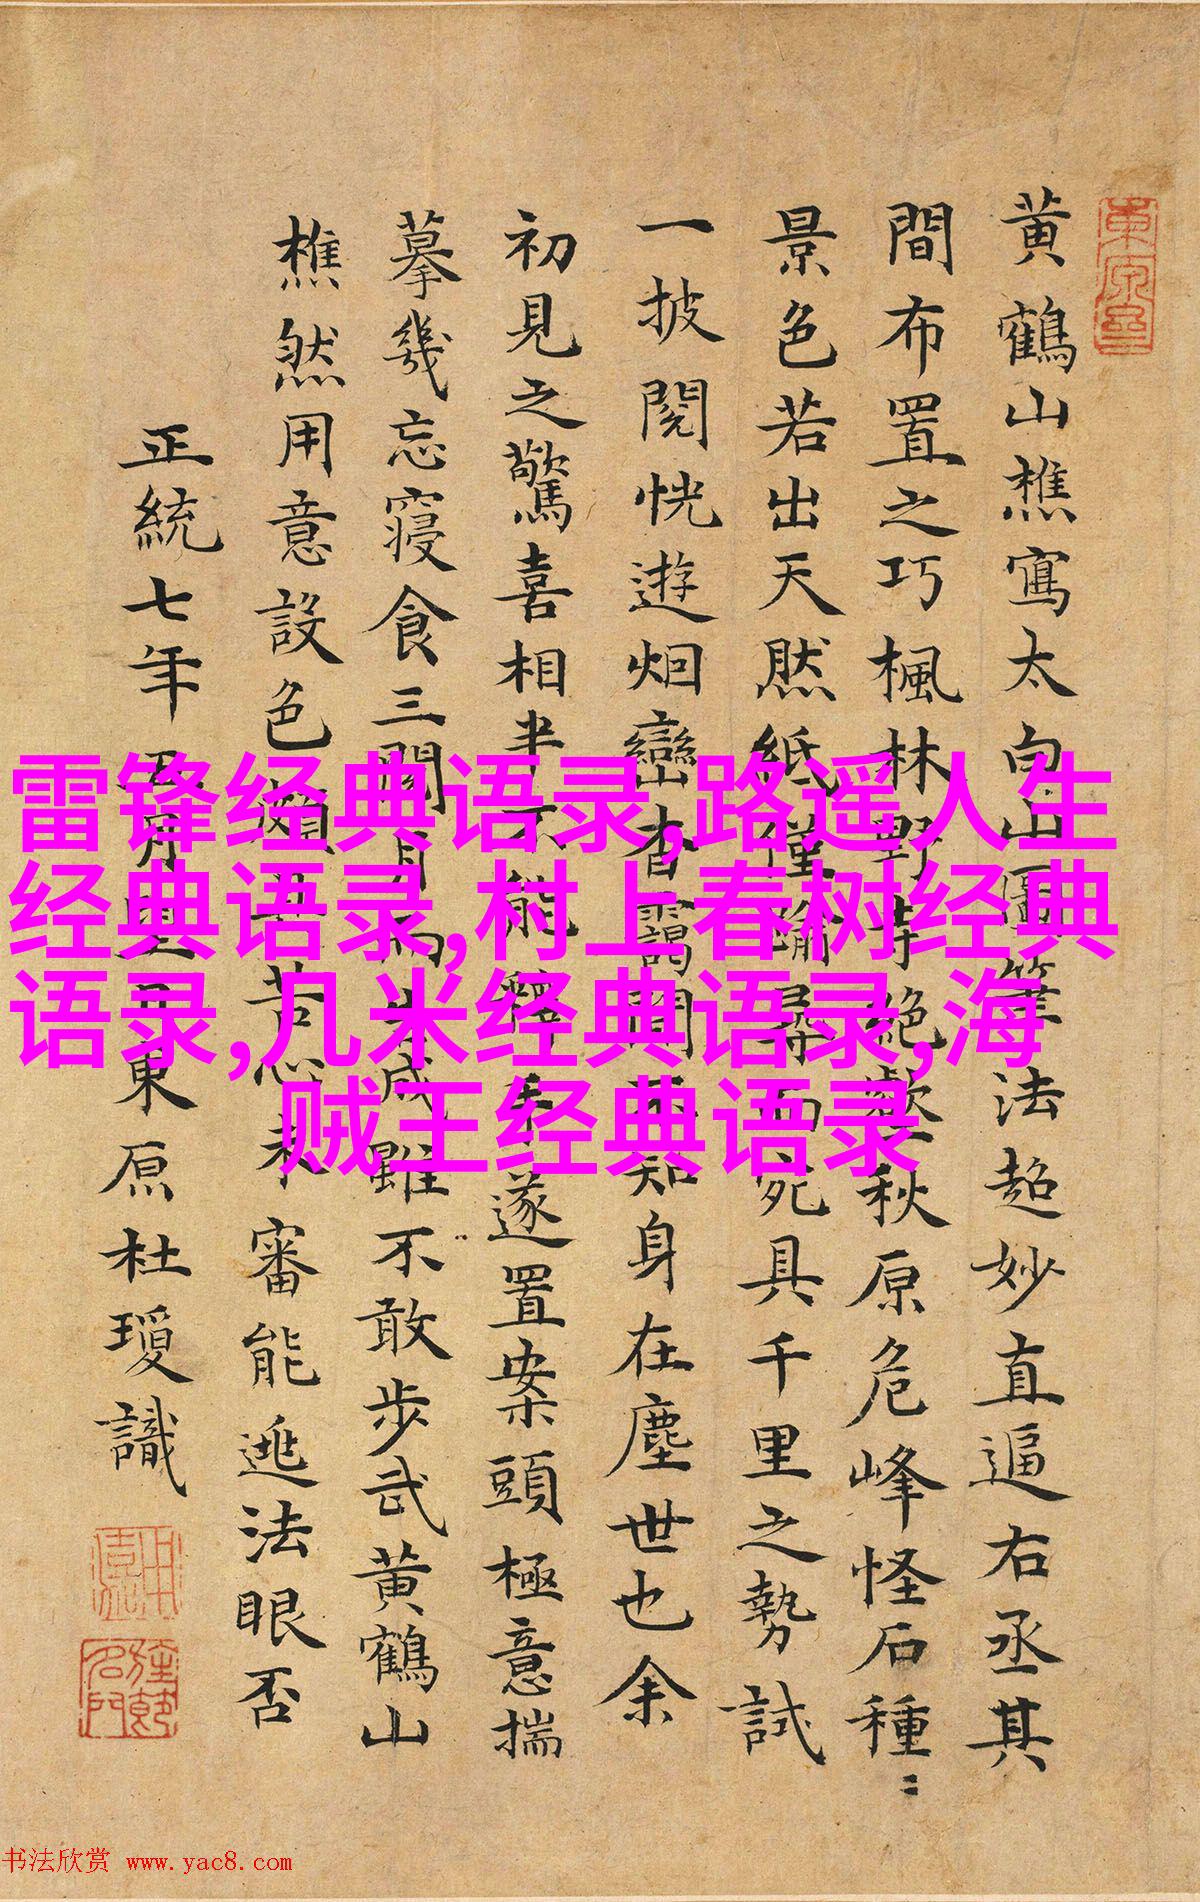 黄鶴山樵寫太白山圖筆法超妙直逼右丞其
間布置之巧楓林野寺絶歡秋原危峰怪石種:
景色若出天然紙僅喻尋而宛具千里之勢試
一披閱恍遊烟巒杳靄間不知身在塵世也余
初見之驚喜相半不能釋手遂置案頭極意揣
摹幾忘寢食三閱月而告成雖不敢步武黄鶴山
樵然用意設色頗具苦心未審能逃法眼否
正統七年 月 東原杜瓊識
雷锋经典语录,路遥人生
经典语录,村上春树经典
语录,几米经典语录,海
贼王经典语录
书法欣赏 www.yac8.com